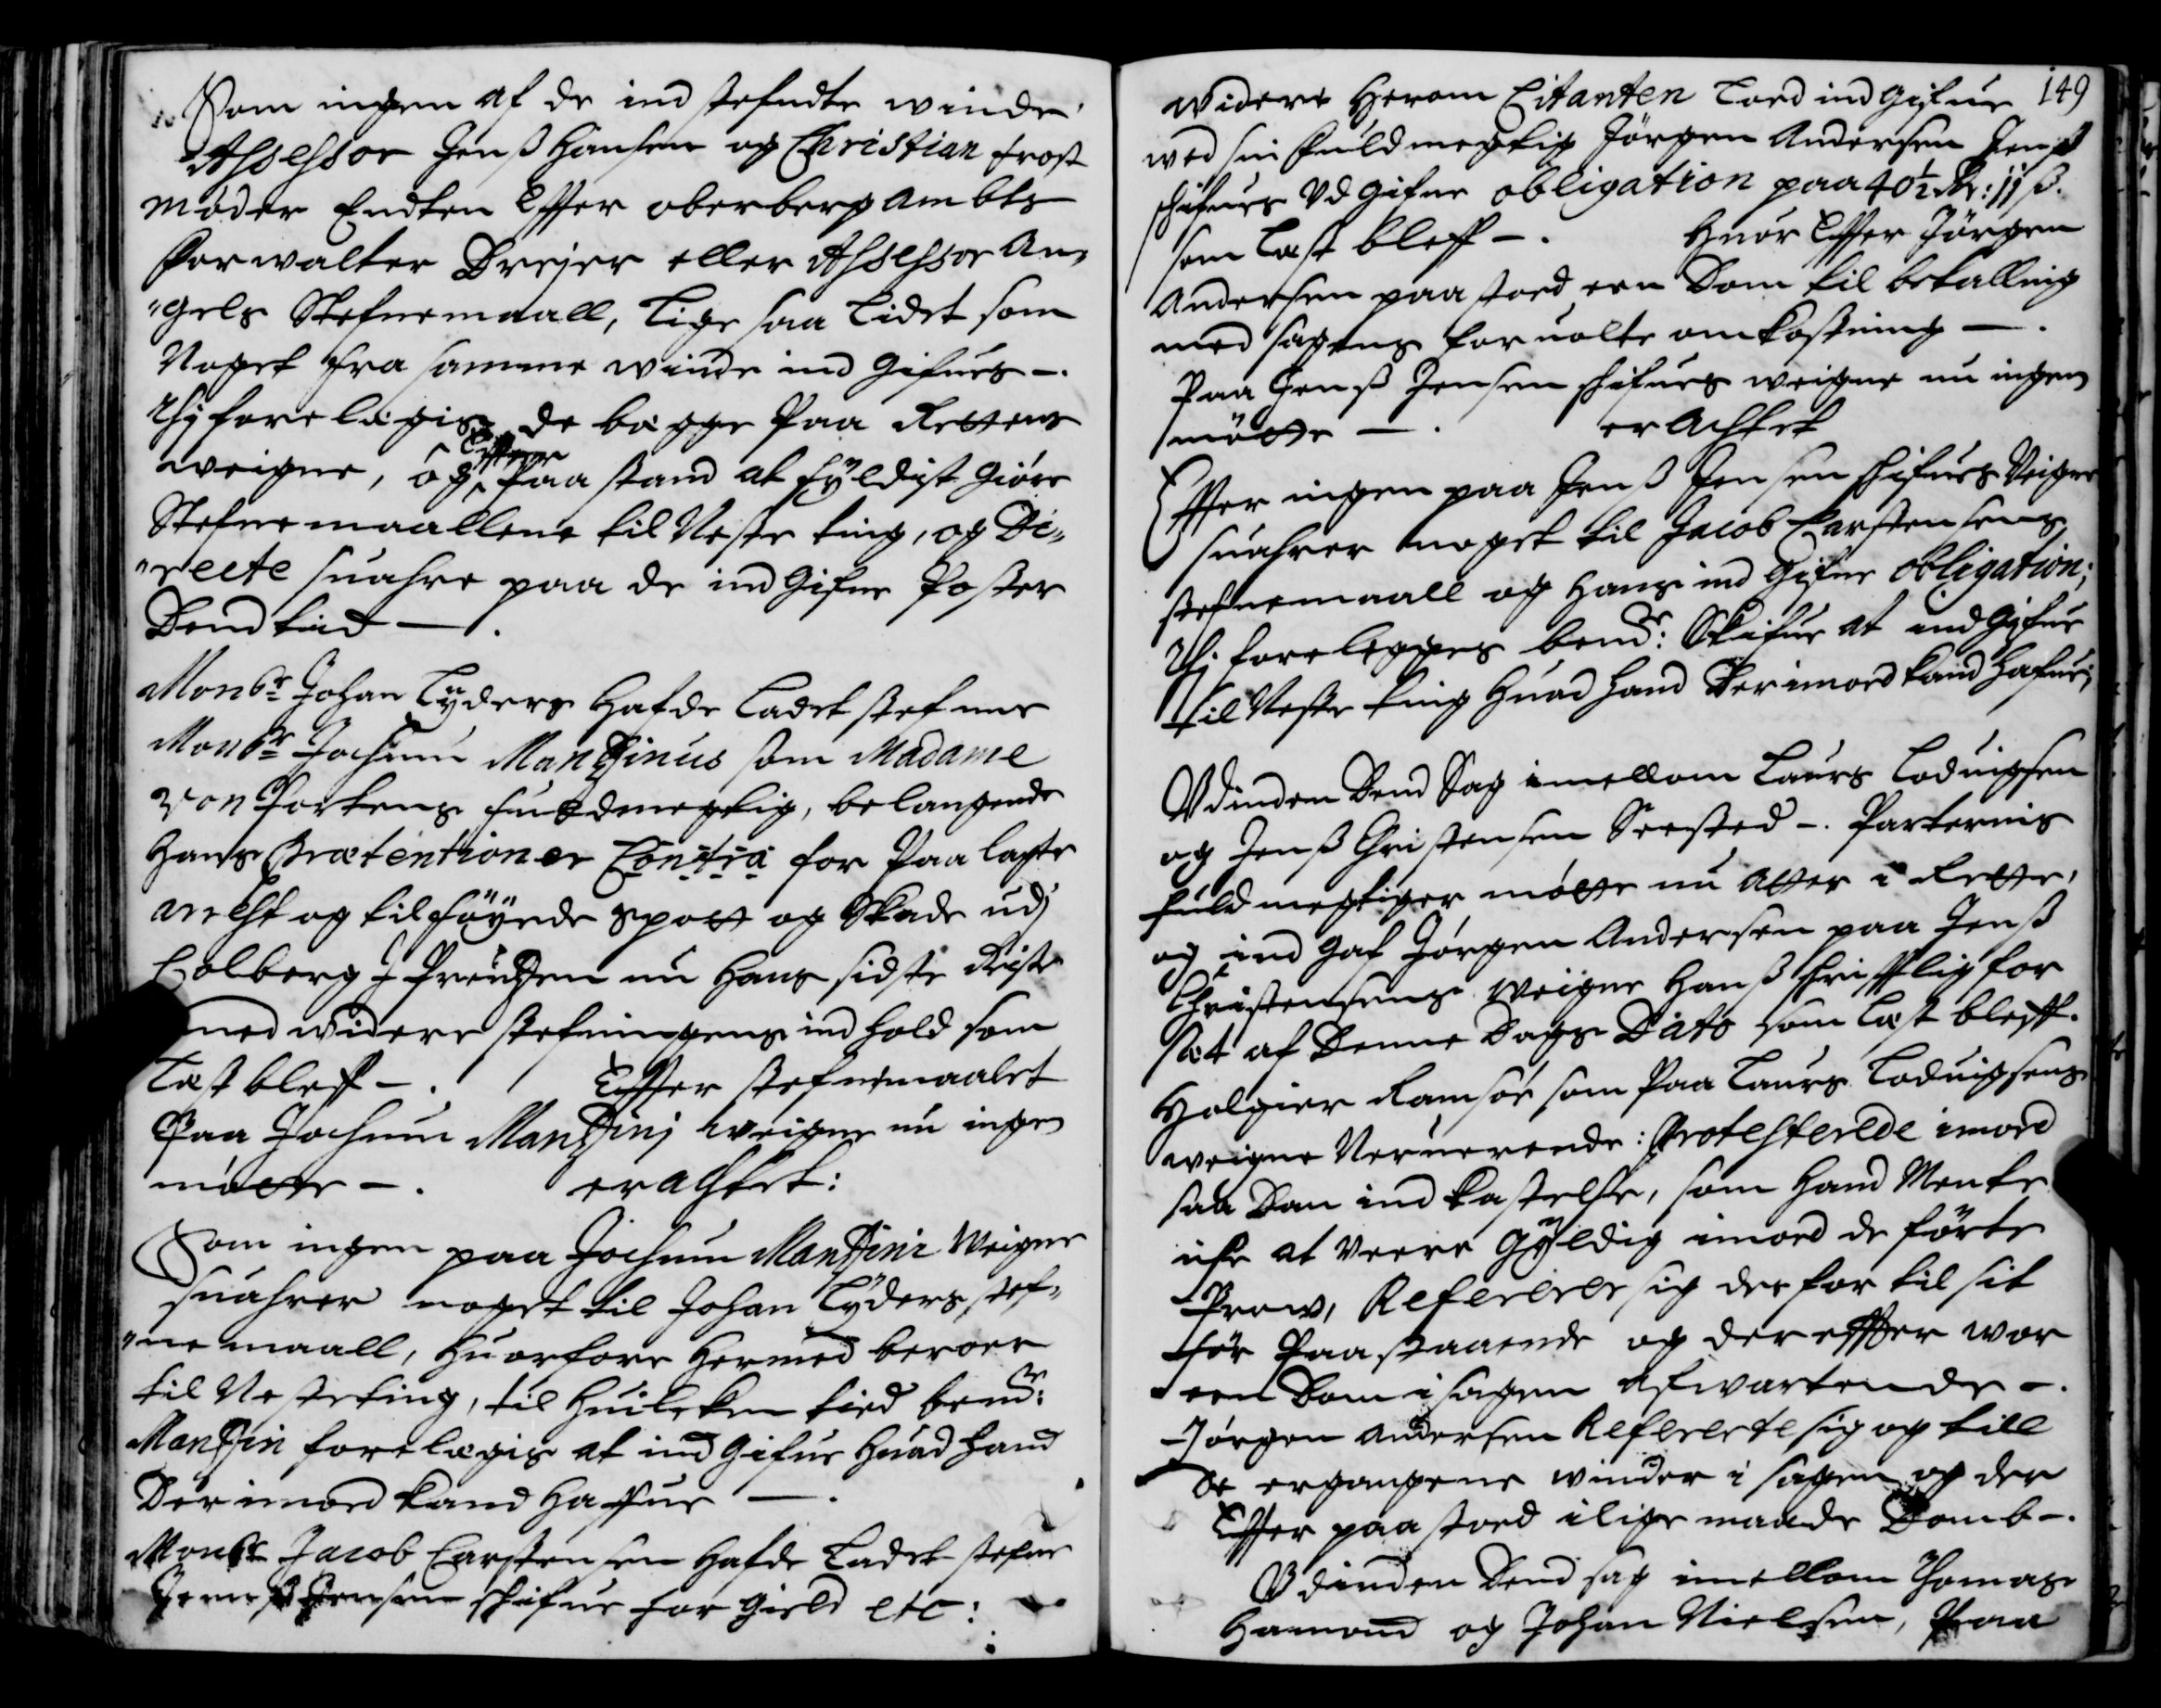 Som ingen af de ind stefndte winde
Assessor Jenß Hansen og Christian frost
møder Endten Effter oberbergAmbts
Forwalter Drejer eller Assessor An„
„gels Stefnemaall, Lige saa Lidet som
Noget fra samme winde ind Gifues –.
thj forelegis de begge Paa Rettens
weigne, og Citterne Paa stand at fyldist Giøre
Stefnemaallene til Neste ting, og Di„
„recte suahre paa de ind Gifne Poster
Dend tid —.
Monsr Johan Lyders Hafde Ladet stefnne
Monsr Jochum Mantzinus som Madame
von Jortens fuldmegtig, belangende
Hans Prætentioner Contra for Paa lagte
arrest og tilføyede spott og Skade udj
Colberg J Preutzen nu Hans sidste Reise
med widere stefningens ind hold som
Lest bleff –. Effter stefnemaalet
Paa Jochum Mantzinj weigne nu ingen
møtte –. erAchtet:
Som ingen paa Jochum Mantzini Weigne
suahrer noget til Johan Lyders stef„
„ne maall, Huorfore Hermed beroer
til Neste ting, til Huilcken tid bemdr:
Mantzin forelegis at ind Gifue Huad Hand
Der imod kand Haffue —.
Monsr Jacob Carstensen Hafde Ladet stefne
Jenß Jensen schifue for Gield etc:
149
widere Herom Citanten Loed ind Gifue
wed sin fuldmegtig Jørgen Andersen Jenß
schifues Vd Gifne obligation paa 40½ Rdr: 11 ß.
som Lest bleff –. Huor Effter Jørgen
Andersen paastoed een Dom til betalling
med sagens foruolte omkostning —.
Paa Jenß Jensen schifues weigne nu ingen
møtte —. erAchtet
Effter ingen paa Jenß Jensen schifues Veigne
suahrer noget til Jacob Carstensens
stefnemaall og Hans ind Gifne obligation;
Thj forelegges bemdr: Skifue at ind Gifue
til Neste ting Huad Hand Der imod kand Hafue;
Vdinden Dend Sag imellom Laurs Loduigsen
og Jenß Christensen Seested –. Parternis
fuldmegtiger møtte nu Atter i Rette,
og ind Gaf Jørgen Andersen paa Jenß
Christensens weigne Hans schrifftlig for
sæt af Denne Dags Dato som Lest bleff.
Holgier Ramsøe som Paa Laurs Loduigsens
weigne Neruerende: Protesterede imod
saa Dan ind kastelse, som Hand Mente
icke at veere Gyldig imod de førte
Prow, Refererer sig der for til sit
før Paastaaende og der effter war
een Dom i sagen Afwartende –.
Jørgen Andersen Refererte sig og till
De ergangene winder i sagen og der
Effter paastoed ilige maade Domb –.
Vdinden Dend sag imellom Thomas
Hamond og Johan Nielsen, Paa